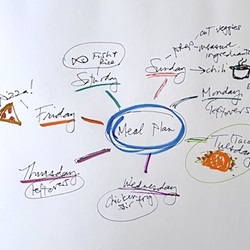 Meal Plan
Sunday
cut veggies
prep + measure
ingredients
chili
Monday
leftovers
Taco
Tuesday
Wednesday
Thursday
leftovers
Friday
pizza!
Saturday
Fish +
Rice